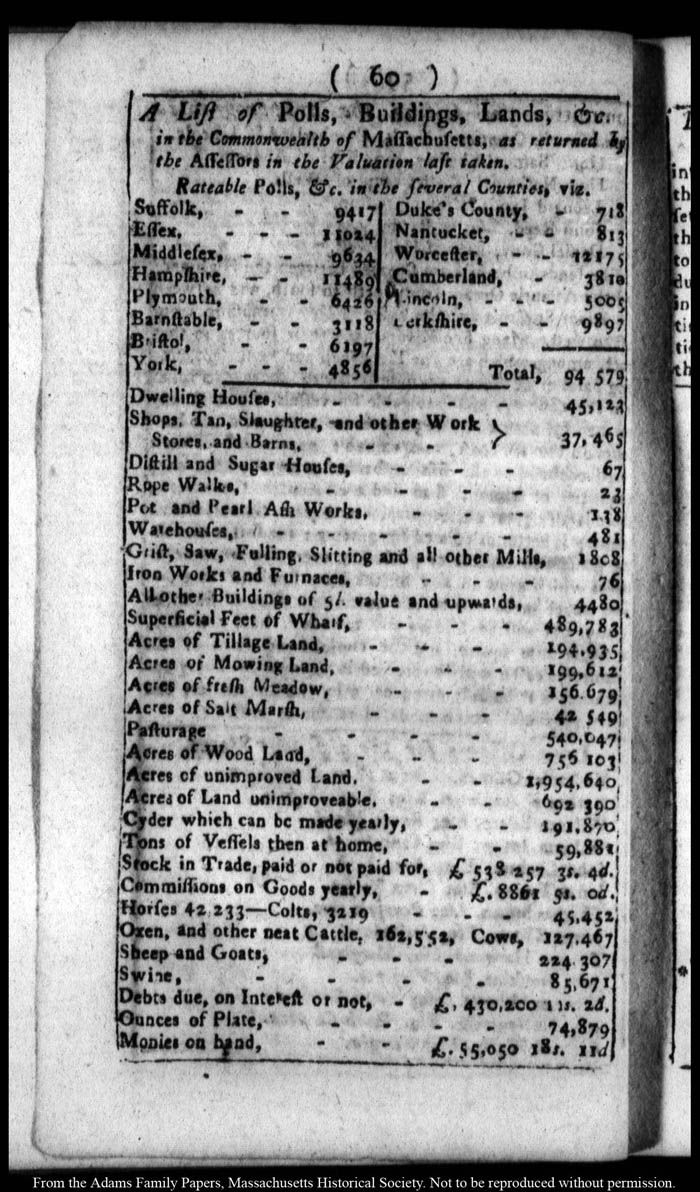 ( 60 )
A Liſt of Polls, Buildings, Lands, &c.
in the Commonwealth of Maſſachuſetts, as returned by
the Aſſeſſors in the Valuation laſt taken.
Rateable Polls, &c. in the ſeveral Counties, viz.
Suffolk, - - 9417
Eſſex, - - - 11024
Middleſex, - - 9634
Hampſhire, - - 11489
Plymouth, - - 6426
Barnſtable, - - 3118
Briſtol, - - 6197
York, - - - 4856
Duke's County, - 718
Nantucket, - - 813
Worceſter, - - 12175
Cumberland, - 3810
Lincoln, - - 5005
Berkſhire, - - 9897
Total, 94 579
Dwelling Houſes, - - - - 45,123
Shops, Tan, Slaughter, and other Work
Stores, and Barns, - - } 37,465
Diſtill and Sugar Houſes, - - - 67
Rope Walks, - - - - 23
Pot and Pearl Aſh Works, - - - 138
Warehouſes, - - - - - 481
Griſt, Saw, Fulling, Slitting and all other Mills, 1808
Iron Works and Furnaces, - - - 76
All other Buildings of 5l. value and upwards, 4480
Superficial Feet of Wharf, - - - 489,783
Acres of Tillage Land, - - - 194,935
Acres of Mowing Land, - - - 199,612
Acres of freſh Meadow, - - - 156.679
Acres of Salt Marſh, - - - 42 549
Paſturage - - - - 540,047
Acres of Wood Land, - - - 756 103
Acres of unimproved Land. - - 1,954,640
Acres of Land unimproveable. - - 692 390
Cyder which can be made yearly, - - 191,870
Tons of Veſſels then at home, - - 59,881
Stock in Trade, paid or not paid for, £ 538 257 3s. 4d.
Commiſſions on Goods yearly, - £. 8861 9s. 0d.
Horſes 42 233—Colts, 3219 - - - 45,452
Oxen, and other neat Cattle, 162,552, Cows, 127,467
Sheep and Goats, - - - 224 307
Swine, - - - - 85,671
Debts due, on Intereſt or not, - £, 430,200 11s. 2d.
Ounces of Plate, - - - - 74,879
Monies on hand, - - £. 55,050 18s. 11d
From the Adams Family Papers, Massachusetts Historical Society. Not to be reproduced without permission.